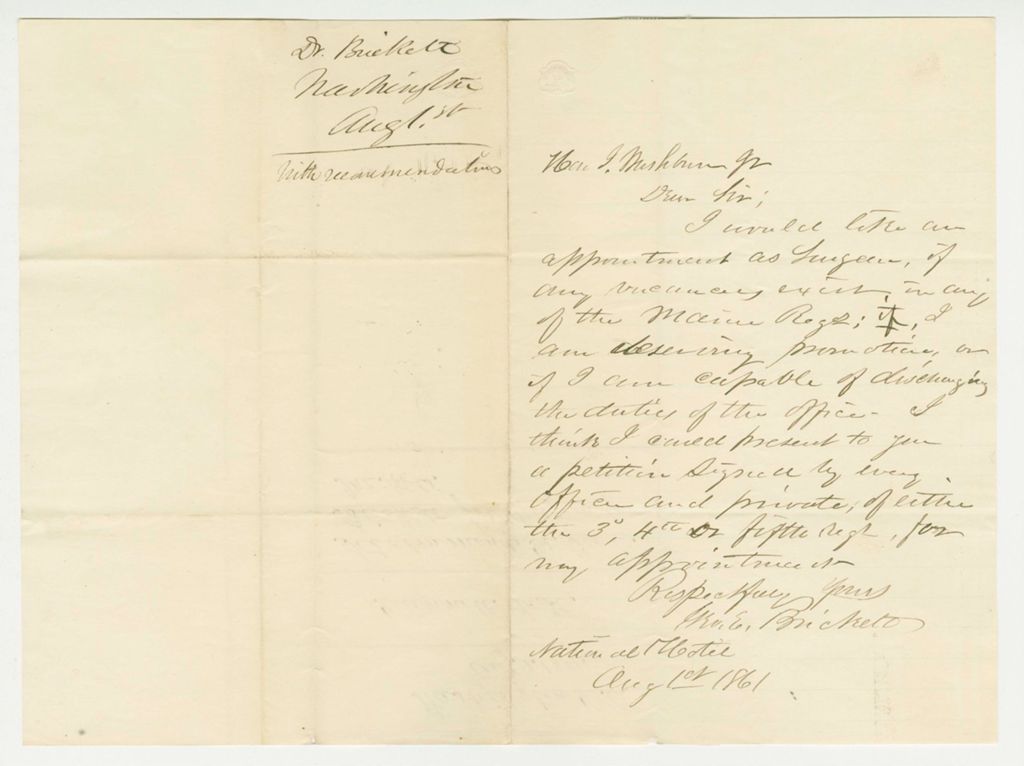 Dr. Brickett
Washington
Aug 1.st
With recommendations
Hon I. Washburn Jr
Dear Sir;
I would like an
appointment as Surgeon, if
any vacancies exist, in any
of the Maine Regts; if, I
am deserving promotion, or
if I am capable of discharging
the duties of the office - I
think I could present to you
a petition signed by every
officer and private, of either
the 3d, 4th or fifth regt, for
my appointment
Respectfully Yours
Geo. E. Brickett
National Hotel
Aug 1st 1861